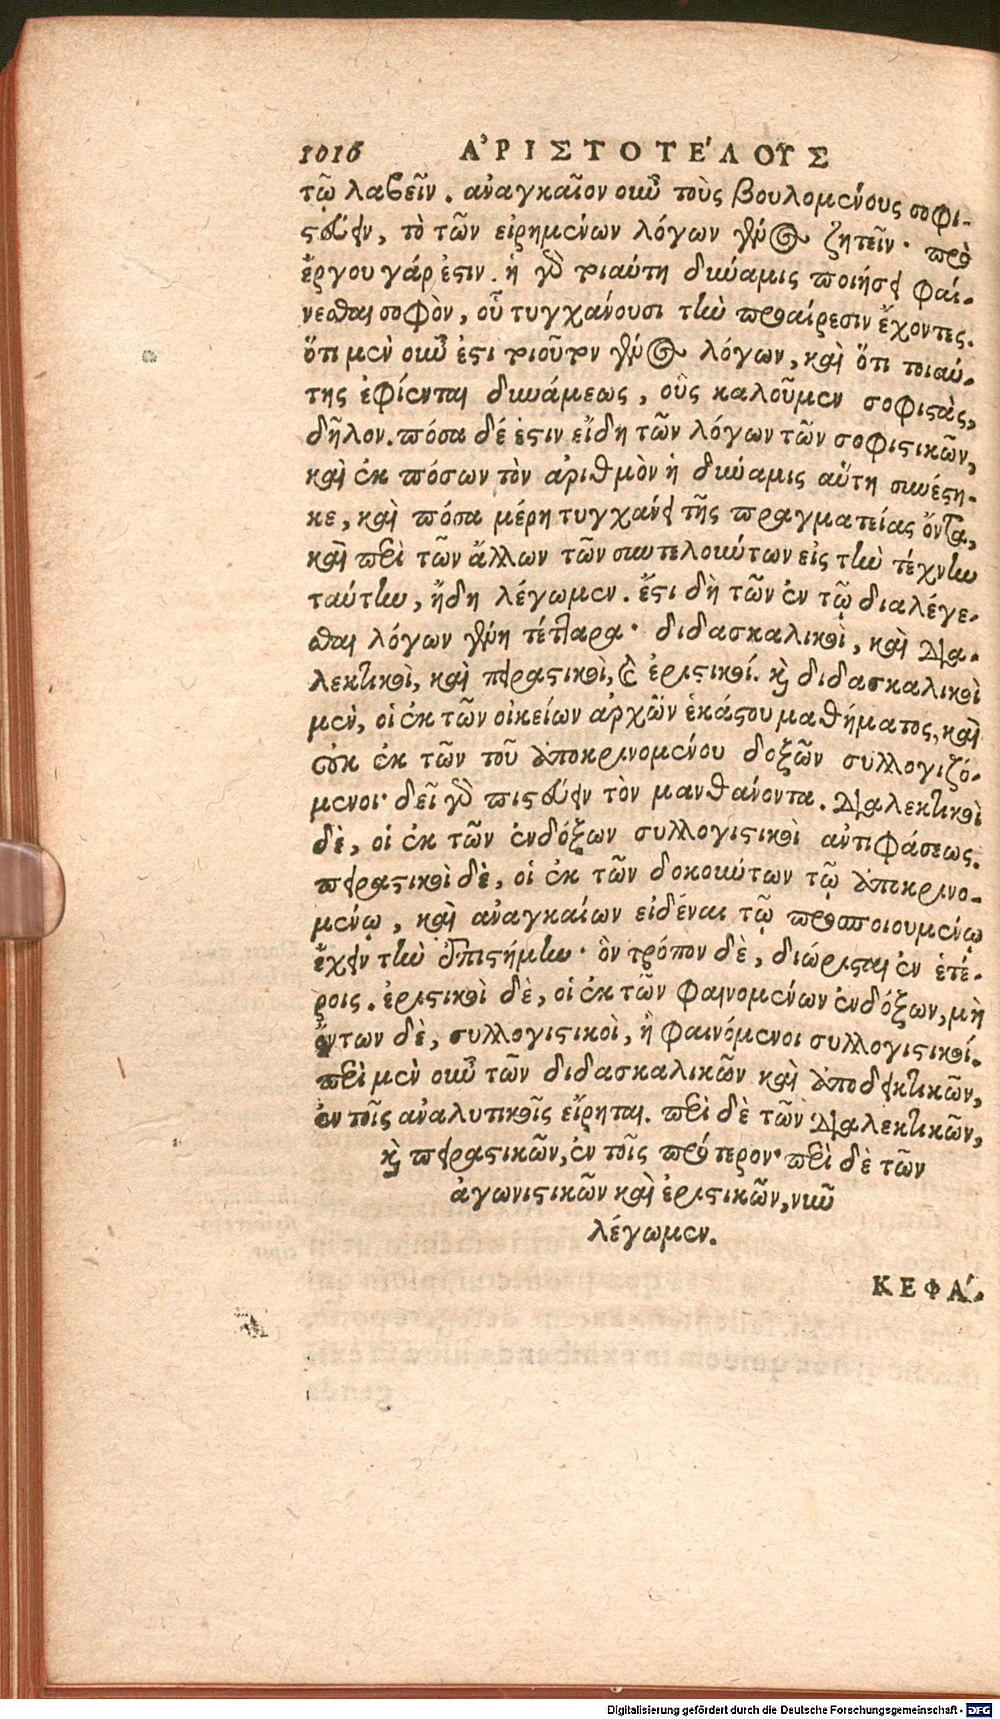 1016 ἈΡΙΣΤΟΤΈΛΟΥΣ
τῷ λαβεῖν. ἀναγκαῖον οὖν τοὺς βουλομένους σοφι-
στεύειν, τὸ τῶν εἰρημένων λόγων γένος ζητεῖν· πρὸ
ἔργου γάρ ἐστιν. ἡ γὰρ τοιαύτη δύναμις ποιήσει φαί-
νεσθαι σοφὸν, οὗ τυγχάνουσι τὴν προαίρεσιν ἔχοντες.
ὅτι μὲν οὖν ἔστι τοιοῦτον γένος λόγων, καὶ ὅτι τοιαύ-
της ἐφίενται δυνάμεως, οὓς καλοῦμεν σοφιστὰς,
δῆλον. πόσα δέ ἐστιν εἴδη τῶν λόγων τῶν σοφιστικῶν,
καὶ ἐκ πόσων τὸν ἀριθμὸν ἡ δύναμις αὕτη συνέστη-
κε, καὶ πόσα μέρη τυγχάνει τῆς πραγματείας ὄντα,
καὶ περὶ τῶν ἄλλων τῶν συντελούντων εἰς τὴν τέχνην
ταύτην, ἤδη λέγωμεν. ἔστι δὴ τῶν ἐν τῷ διαλέγε-
σθαι λόγων γένη τέτταρα· διδασκαλικοὶ, καὶ δια-
λεκτικοὶ, καὶ πειραστικοὶ, καὶ ἐριστικοί. καὶ διδασκαλικοὶ
μὲν, οἱ ἐκ τῶν οἰκείων ἀρχῶν ἑκάστου μαθήματος, καὶ
οὐκ ἐκ τῶν τοῦ ἀποκρινομένου δοξῶν συλλογιζό-
μενοι· δεῖ γὰρ πιστεύειν τὸν μανθάνοντα. διαλεκτικοὶ
δὲ, οἱ ἐκ τῶν ἐνδόξων συλλογιστικοὶ ἀντιφάσεως.
πειραστικοὶ δὲ, οἱ ἐκ τῶν δοκούντων τῷ ἀποκρινο-
μένῳ, καὶ ἀναγκαίων εἰδέναι τῷ προσποιουμένῳ
ἔχειν τὴν ἐπιστήμην· ὃν τρόπον δὲ, διώρισται ἐν ἑτέ-
ροις. ἐριστικοὶ δὲ, οἱ ἐκ τῶν φαινομένων ἐνδόξων, μὴ
ὄντων δὲ, συλλογιστικοὶ, ἢ φαινόμενοι συλλογιστικοί.
περὶ μὲν οὖν τῶν διδασκαλικῶν καὶ ἀποδεικτικῶν,
ἐν τοῖς ἀναλυτικοῖς εἴρηται. περὶ δὲ τῶν διαλεκτικῶν,
καὶ πειραστικῶν, ἐν τοῖς πρότερον· περὶ δὲ τῶν
ἀγωνιστικῶν καὶ ἐριστικῶν, νῦν
λέγωμεν.
ΚΕΦΑ΄.
Digitalisierung gefördert durch die Deutsche Forschungsgemeinschaft - DFG